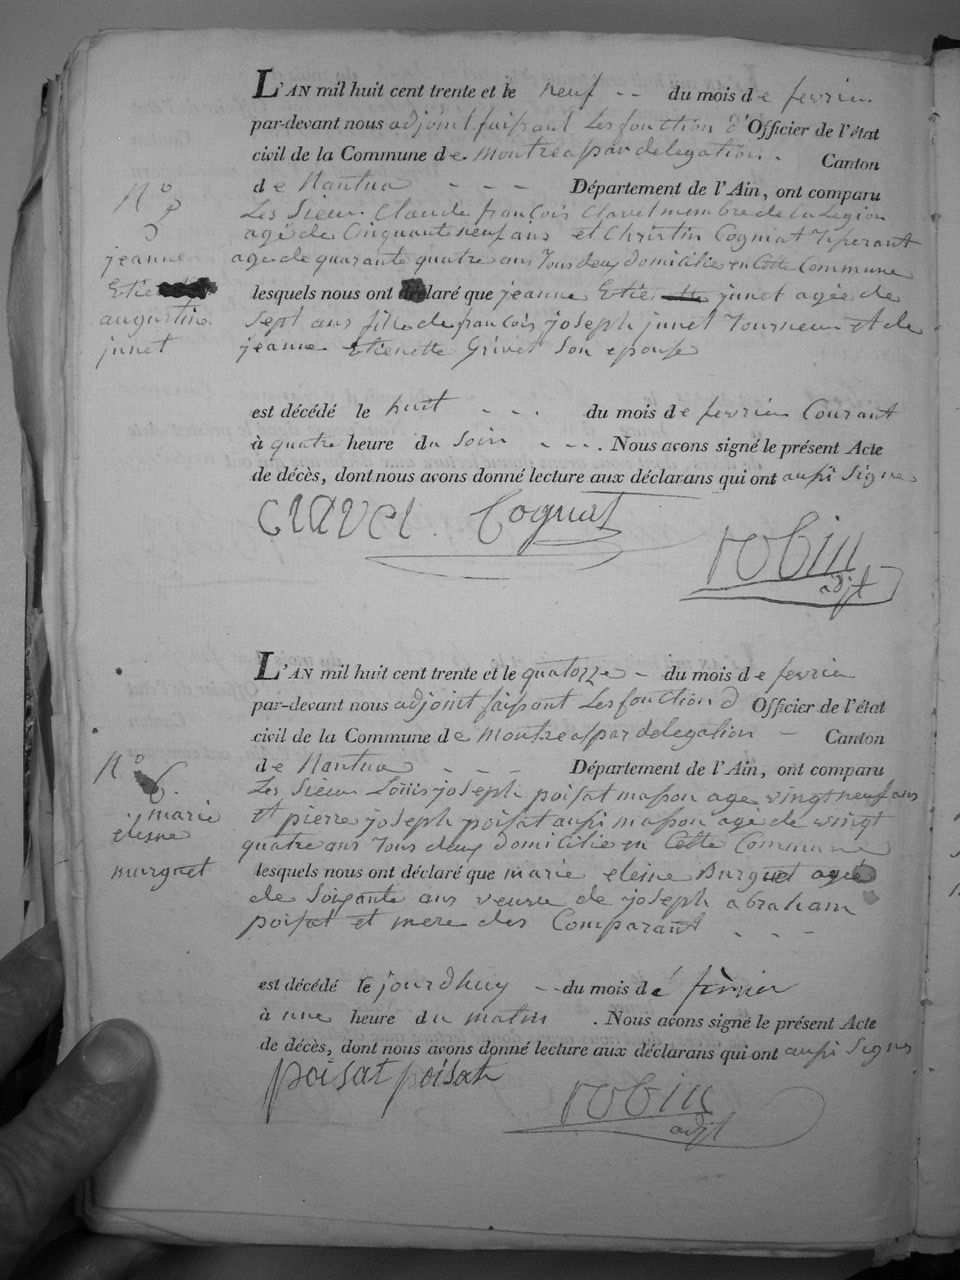 L'AN mil huit cent trente et le neuf -- du mois de fevrier
par-devant nous adjoint faisant Les fonction d'Officier de l'état
civil de la Commune de Montrea par delegation. Canton
de Nantua - - - Département de l'Ain, ont comparu
Les Sieur Claude françois Clavel membre de La Legion
agé de Cinquante neuf ans et Christin Cogniat
agé de quarante quatre ans Tous deux domicilié en Cette Commune
lesquels nous ont déclaré que jeanne Etie junet agée de
Sept ans fille de françois joseph junet Tourneur et de
jeanne Etienette Grivet Son epouse
est décédé le huit - - - du mois de fevrier Courant
à quatre heure du Soir - - -. Nous avons signé le présent Acte
de décès, dont nous avons donné lecture aux déclarans qui ont aussi Signe
N°
5
jeanne
Etie
augustine
junet
CLAVEL Cogniat
robin
adjt
L'AN mil huit cent trente et le quatorze - du mois de fevrier
par-devant nous adjoint faisant Les fonction d Officier de l'état
civil de la Commune de Montrea par delegation - Canton
de Nantua - - - Département de l'Ain, ont comparu
Les Sieur Loüis joseph poisat masson age vingt neuf ans
et pierre joseph poisat aussi masson agé de vingt
quatre ans Tous deux domicilié en Cette Commune
lesquels nous ont déclaré que marie eleine Burguet agée
de Soixante ans veuve de joseph abraham
poisat et mere des Comparant - - -
est décédé le jourdhuy -- du mois de fevrier
à une heure du matin. Nous avons signé le présent Acte
de décès, dont nous avons donné lecture aux déclarans qui ont aussi Signe
N°
6.
marie
eleine
burguet
poisat poisat
robin
adjt